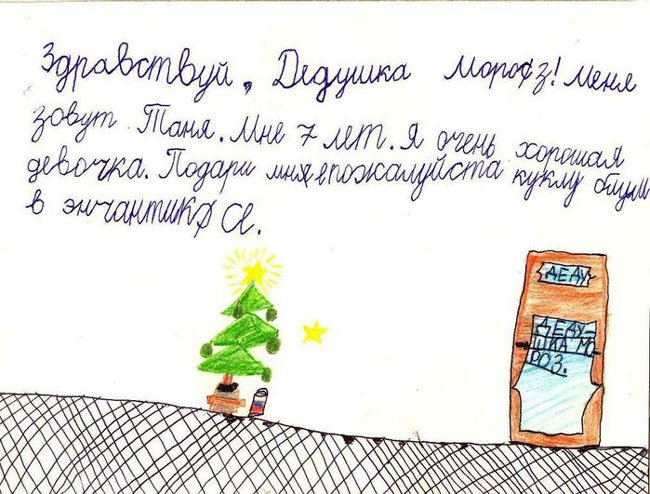 Здравствуй, Дедушка Мороз! Меня
зовут Таня. Мне 7 лет. Я очень хорошая
девочка. Подари мне пожалуйста куклу блум
в энчантиксе.
ДЕДУ
ДЕДУ-
ШКА МО-
РОЗ.